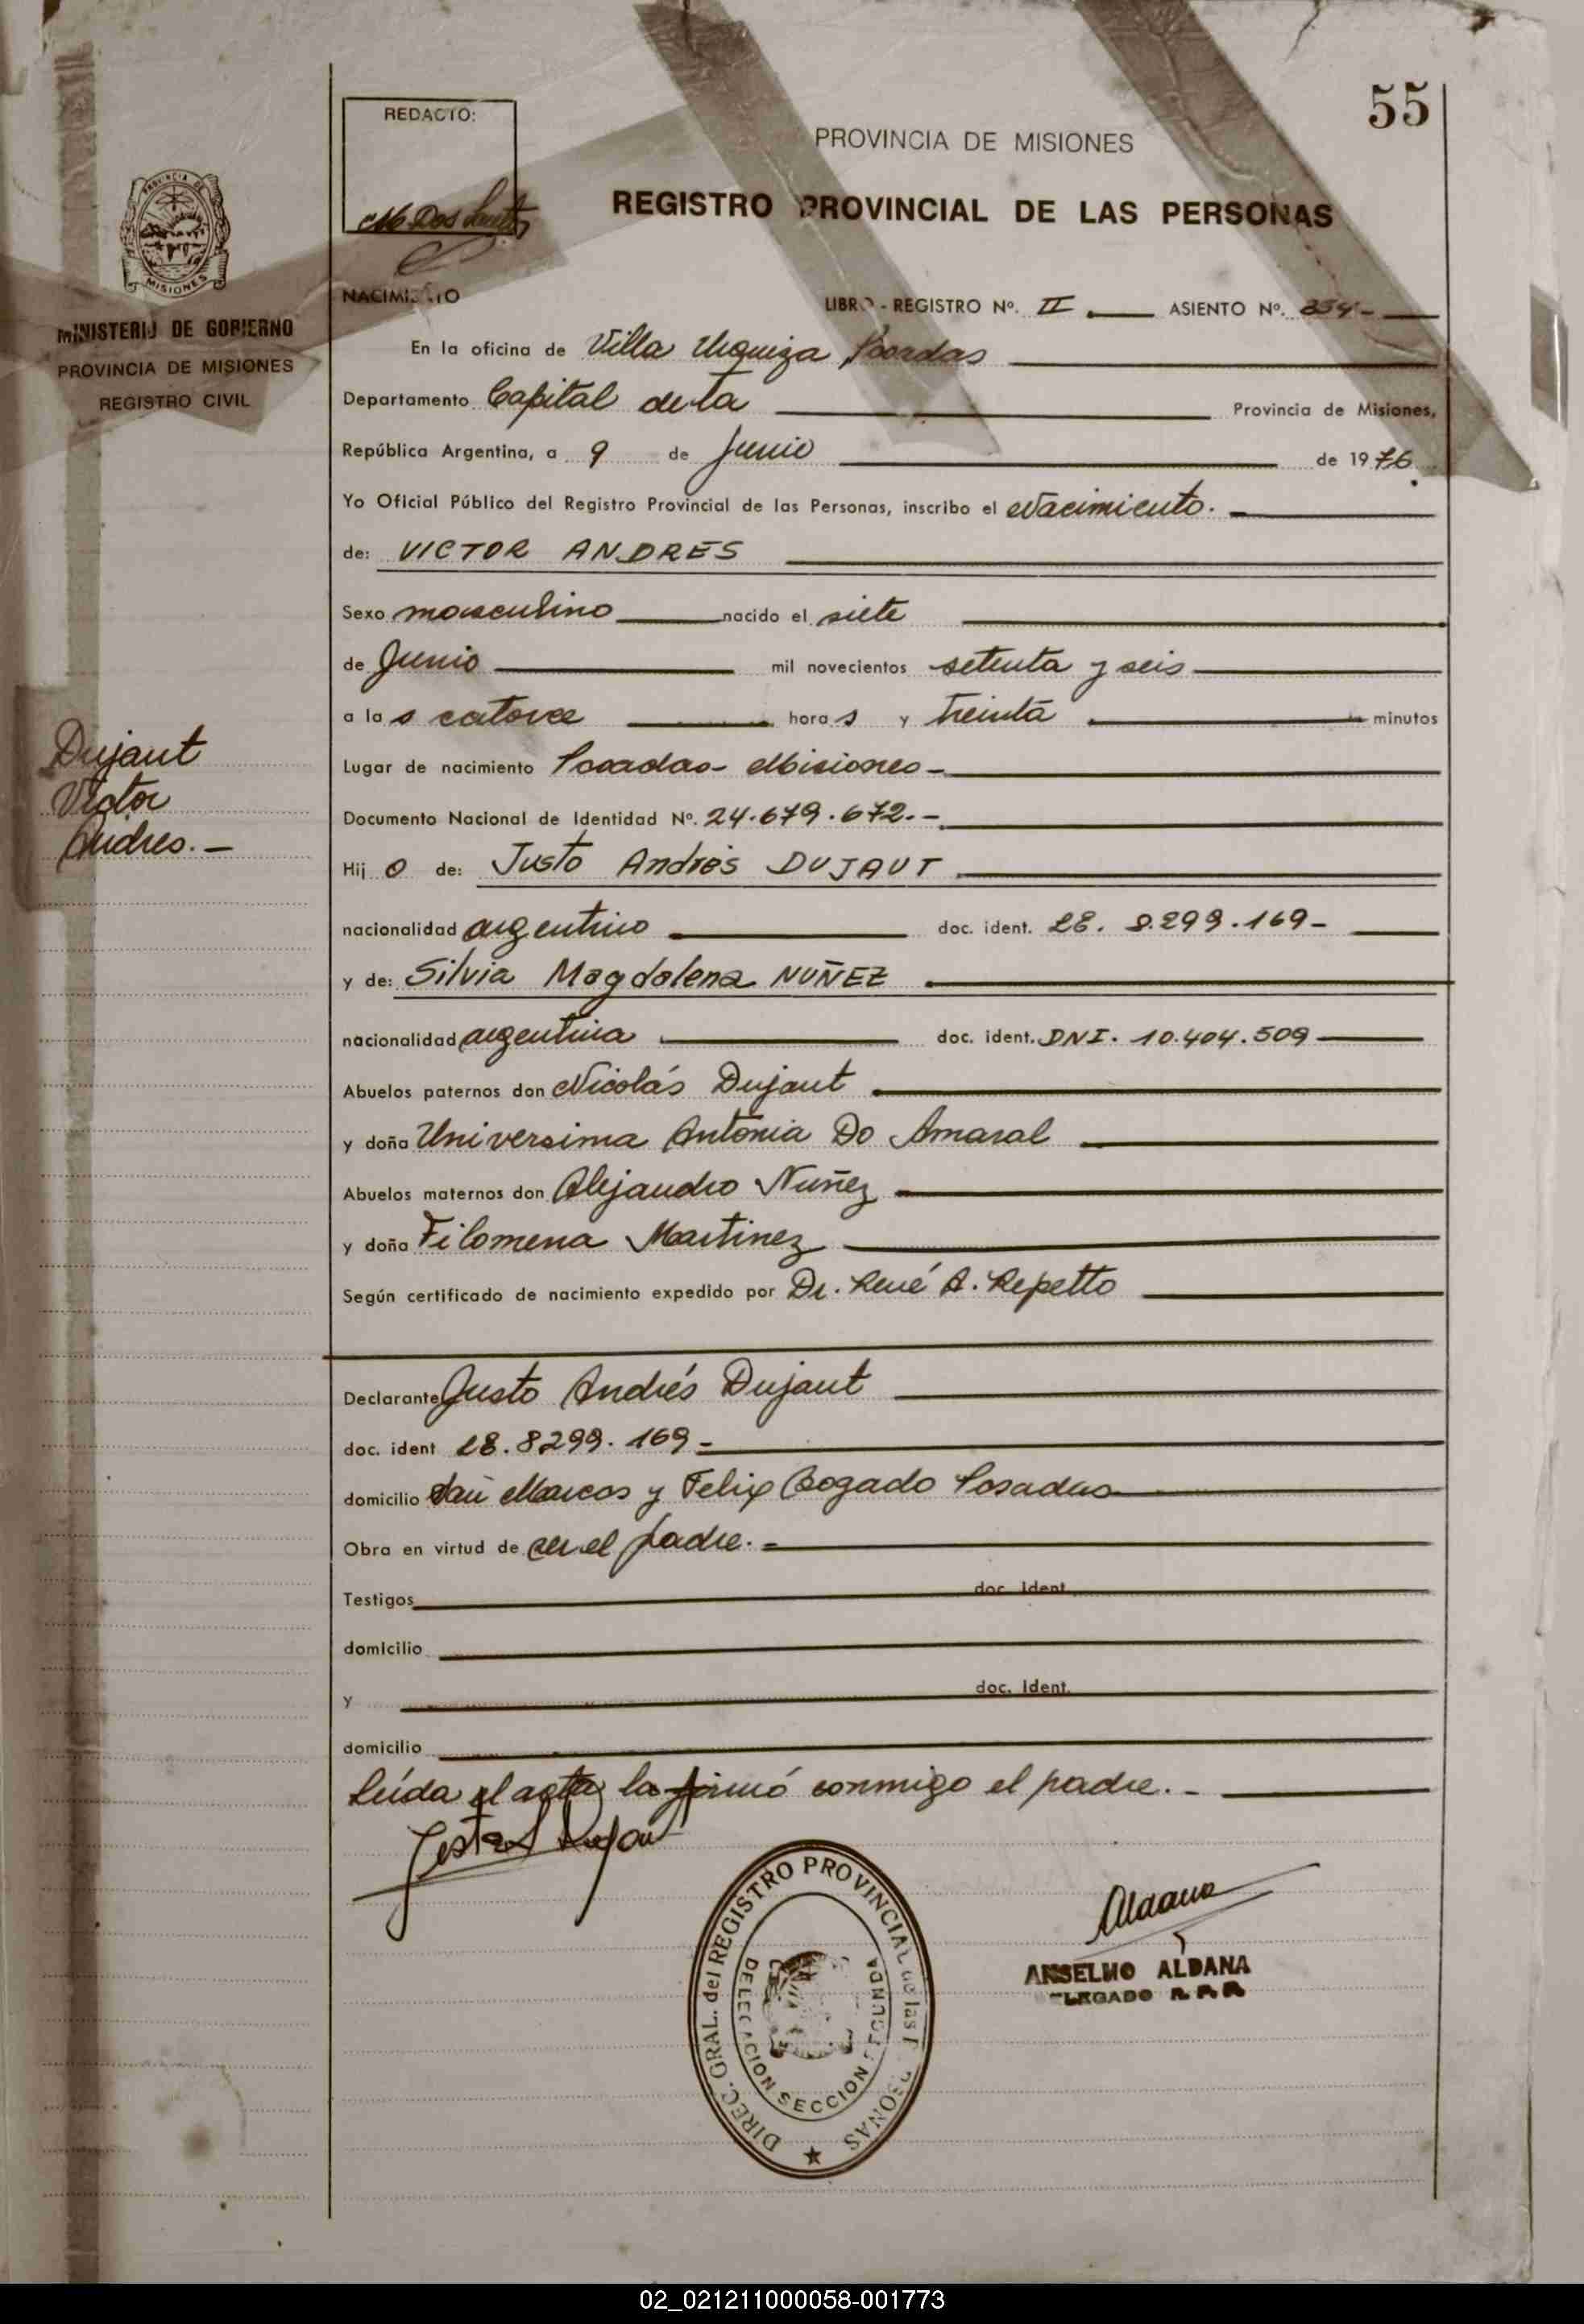 55
REDACTO:
PROVINCIA DE MISIONES
REGISTRO PROVINCIAL DE LAS PERSONAS
PROVINCIA DE
MISIONES
MINISTERIO DE GOBIERNO
PROVINCIA DE MISIONES
REGISTRO CIVIL
NACIMIENTO
LIBRO - REGISTRO Nº. II ASIENTO Nº.
En la oficina de Villa Urquiza Posadas
Departamento Capital de la Provincia de Misiones,
República Argentina, a 9 de Junio de 1976
Yo Oficial Público del Registro Provincial de las Personas, inscribo el Nacimiento.-
de: VICTOR ANDRES
Sexo masculino nacido el siete
de Junio mil novecientos setenta y seis
a las catorce horas y treinta minutos
Dujaut
Victor
Andres.-
Lugar de nacimiento Posadas- Misiones-
Documento Nacional de Identidad Nº. 24.679.672.-
Hijo de: Justo Andrés DUJAUT
nacionalidad argentino doc. ident. LE. 8.299.169-
y de: Silvia Magdalena NUÑEZ
nacionalidad argentina doc. ident. DNI. 10.404.509
Abuelos paternos don Nicolás Dujaut
y doña Universima Antonia Do Amaral
Abuelos maternos don Alejandro Nuñez
y doña Filomena Martinez
Según certificado de nacimiento expedido por Dr. René A. Repetto
Declarante Justo Andrés Dujaut
doc. ident LE. 8299.169-
domicilio San Marcos y Felix Bogado Posadas
Obra en virtud de ser el padre.-
Testigos doc. Ident.
domicilio
y doc. Ident.
domicilio
Leída el acta, la firmó conmigo el padre.-
DIREC. GRAL. del REGISTRO PROVINCIAL de las PERSONAS
DELEGACION SECCION SEGUNDA
Aldana
ANSELMO ALDANA
DELEGADO R. P. P.
02_021211000058-001773